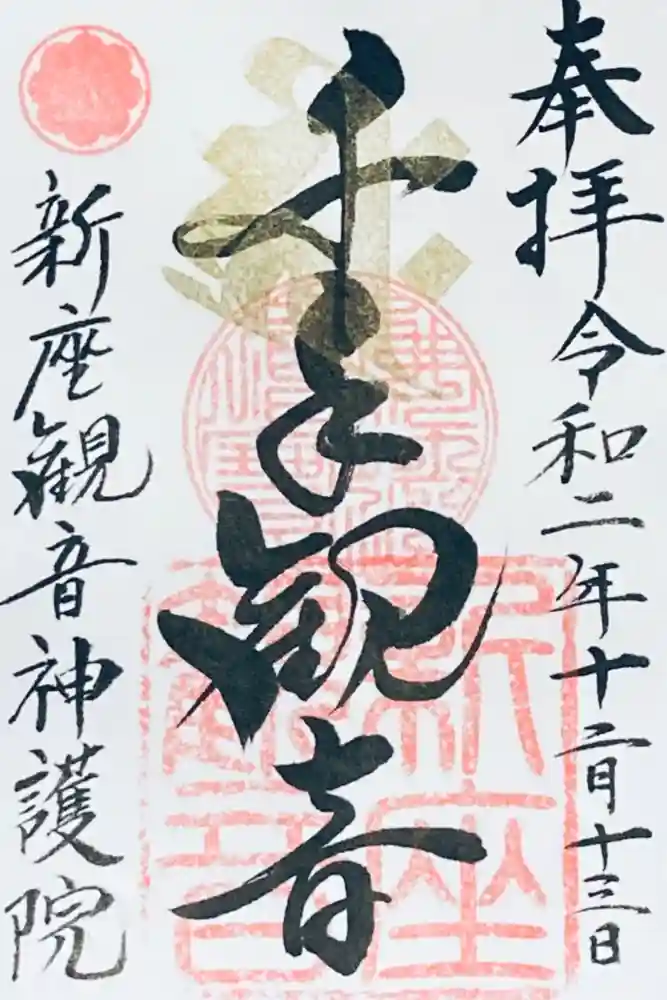 奉拝令和二年十二月十三日
千手観音
新座観音神護院